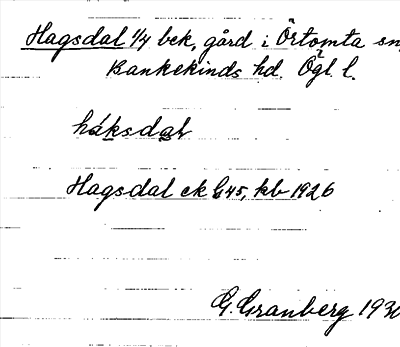 Hagsdal 1/4 bek, gård i Örtomta sn,
Bankekinds hd. Ögl. l.
háksdal
Hagsdal ek 645, kb 1926
G. Granberg 1930